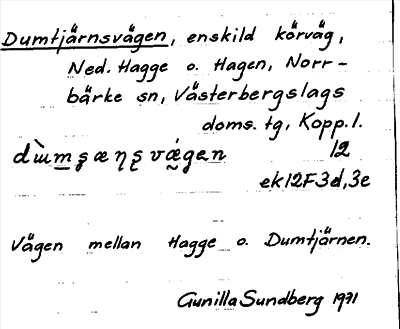 Dumtjärnsvägen, enskild körväg,
Ned. Hagge o. Hagen, Norr-
bärke sn, Västerbergslags
doms. tg, Kopp. l.
dùmʂæɳʂvǽgen 12
ek12F3d,3e
Vägen mellan Hagge o. Dumtjärnen.
Gunilla Sundberg 1971